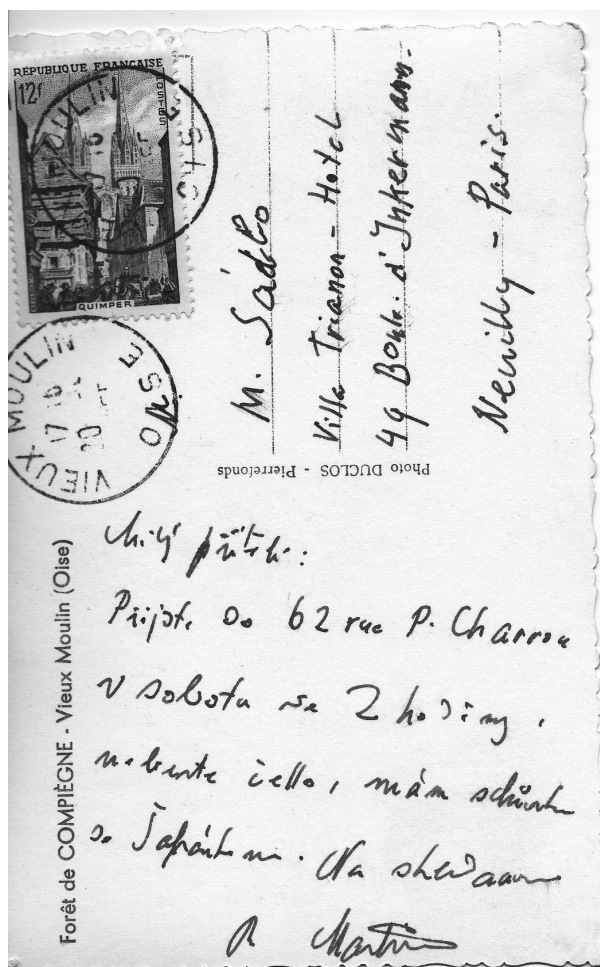 RÉPUBLIQUE FRANÇAISE
12f
POSTES
QUIMPER
VIEUX MOULIN
OISE
17 16
20
M. Sádlo
Villa Trianon - Hotel
49 Boul. d'Inkermann.
Neuilly - Paris.
Photo DUCLOS - Pierrefonds
Forêt de COMPIÈGNE - Vieux Moulin (Oise)
Milý příteli:
Přijďte do 62 rue P. Charron
v sobotu ve 2 hodiny,
neberte čello, mám schůzku
se Na shledanou
B Martinů